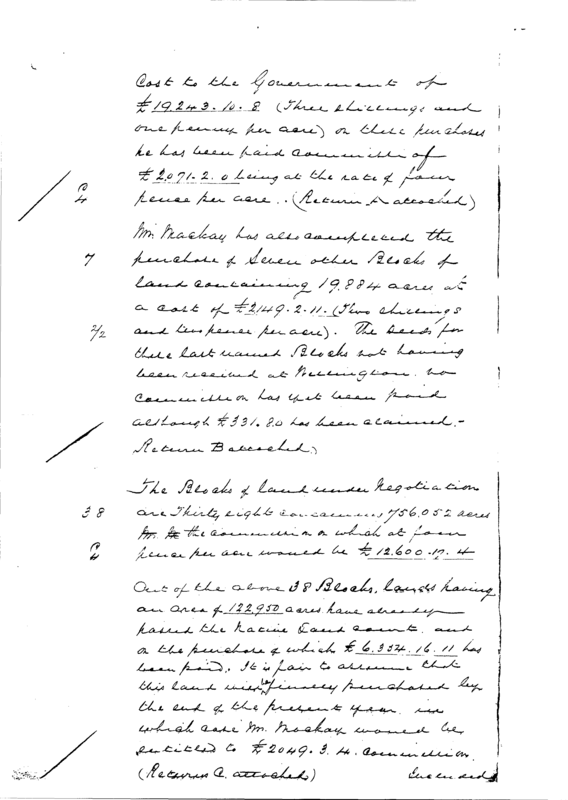 Cost to the Government of
£19243.10.8 (Three shillings and
one penny per acre) on these purchases
he has been paid commission of
£2,071.2.0 being at the rate of four
pence per acre. (Return A attached)
Mr. Mackay has also completed the
7 purchase of Seven other Blocks of
land containing 19,884 acres at
a cost of £2149.2.11. (Two shillings
2/2 and twopence per acre). The deeds for
these last named Blocks not having
been received at Wellington no
commission has yet been paid
although £331.8.0 has been claimed.-
Return B attached)
The Blocks of land under Negotiation
38 are Thirty eight containing 756.052 acres
the commission on which at four
pence per acre would be £12.600.17.4
Out of the above 38 Blocks, lands having
an area of 122,950 acres have already
passed the Native Land Court, and
on the purchase of which £6,354.16.11 has
been paid. It is fair to assume that
this land will be finally purchased by
the end of the present year in
which case Mr. Mackay would be
entitled to £2049.3.4. commission.
(Return C. attached)